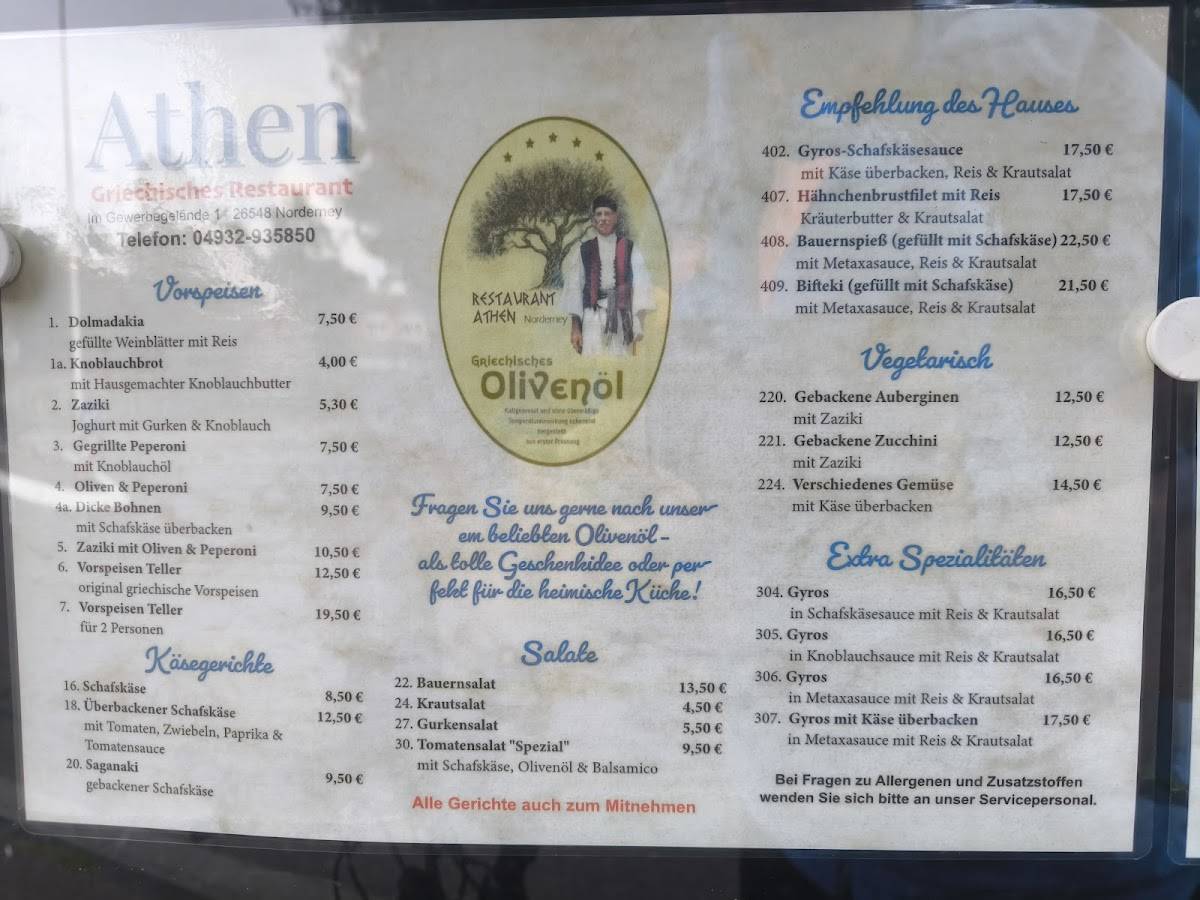 Athen
Griechisches Restaurant
Im Gewerbegelände 1 26548 Norderney
Telefon: 04932-935850
Vorspeisen
1. Dolmadakia 7,50 €
gefüllte Weinblätter mit Reis
1a. Knoblauchbrot 4,00 €
mit Hausgemachter Knoblauchbutter
2. Zaziki 5,30 €
Joghurt mit Gurken & Knoblauch
3. Gegrillte Peperoni 7,50 €
mit Knoblauchöl
4. Oliven & Peperoni 7,50 €
4a. Dicke Bohnen 9,50 €
mit Schafskäse überbacken
5. Zaziki mit Oliven & Peperoni 10,50 €
6. Vorspeisen Teller 12,50 €
original griechische Vorspeisen
7. Vorspeisen Teller 19,50 €
für 2 Personen
Käsegerichte
16. Schafskäse 8,50 €
18. Überbackener Schafskäse 12,50 €
mit Tomaten, Zwiebeln, Paprika &
Tomatensauce
20. Saganaki 9,50 €
gebackener Schafskäse
RESTAURANT
ATHEN Norderney
Griechisches
Olivenöl
Kaltgepresst und ohne übermäßige
Temperatureinwirkung schonend
hergestellt
aus erster Pressung
Fragen Sie uns gerne nach unser
em beliebten Olivenöl -
als tolle Geschenkidee oder per
fekt für die heimische Küche!
Salate
22. Bauernsalat 13,50 €
24. Krautsalat 4,50 €
27. Gurkensalat 5,50 €
30. Tomatensalat "Spezial" 9,50 €
mit Schafskäse, Olivenöl & Balsamico
Alle Gerichte auch zum Mitnehmen
Empfehlung des Hauses
402. Gyros-Schafskäsesauce 17,50 €
mit Käse überbacken, Reis & Krautsalat
407. Hähnchenbrustfilet mit Reis 17,50 €
Kräuterbutter & Krautsalat
408. Bauernspieß (gefüllt mit Schafskäse) 22,50 €
mit Metaxasauce, Reis & Krautsalat
409. Bifteki (gefüllt mit Schafskäse) 21,50 €
mit Metaxasauce, Reis & Krautsalat
Vegetarisch
220. Gebackene Auberginen 12,50 €
mit Zaziki
221. Gebackene Zucchini 12,50 €
mit Zaziki
224. Verschiedenes Gemüse 14,50 €
mit Käse überbacken
Extra Spezialitäten
304. Gyros 16,50 €
in Schafskäsesauce mit Reis & Krautsalat
305. Gyros 16,50 €
in Knoblauchsauce mit Reis & Krautsalat
306. Gyros 16,50 €
in Metaxasauce mit Reis & Krautsalat
307. Gyros mit Käse überbacken 17,50 €
in Metaxasauce mit Reis & Krautsalat
Bei Fragen zu Allergenen und Zusatzstoffen
wenden Sie sich bitte an unser Servicepersonal.